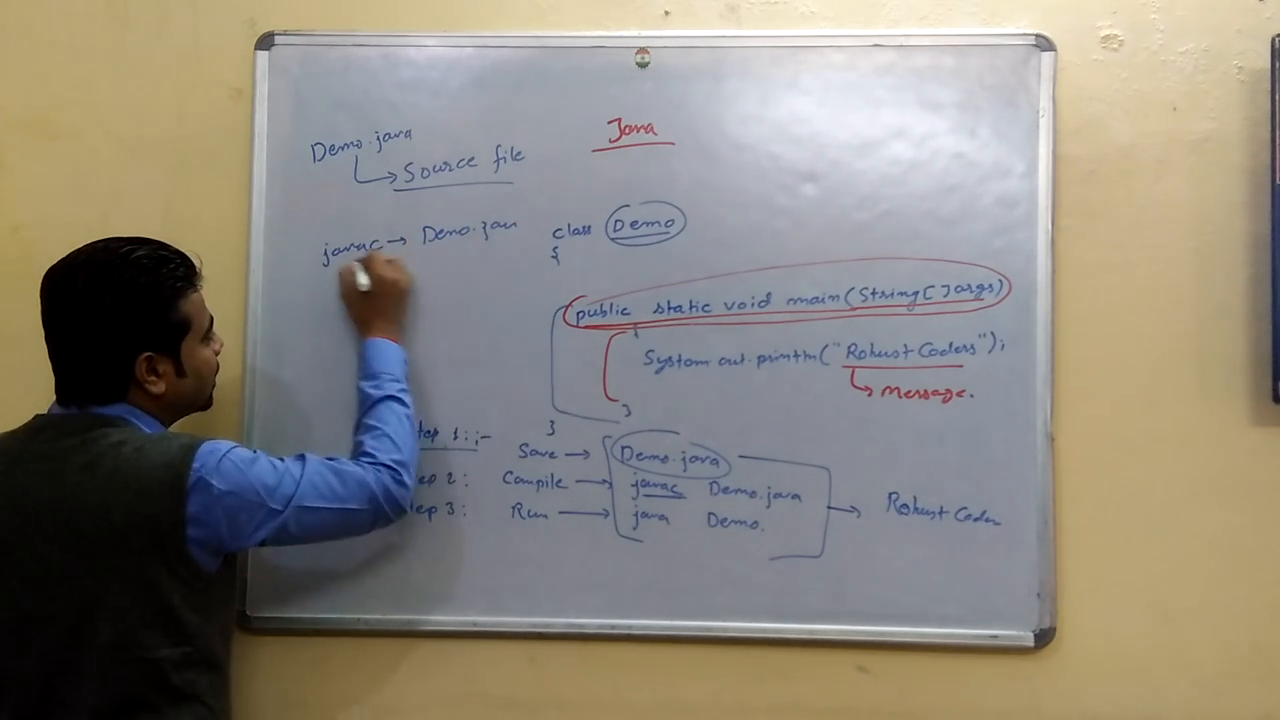 Java
Demo.java
Source file
javac → Demo.jav
class Demo
{
public static void main(String[] args)
{
System.out.println("Robust Coders");
message.
}
}
tep 1:;-
Save → Demo.java
ep 2: Compile → javac Demo.java
ep 3: Run → java Demo.
→ Robust Coder